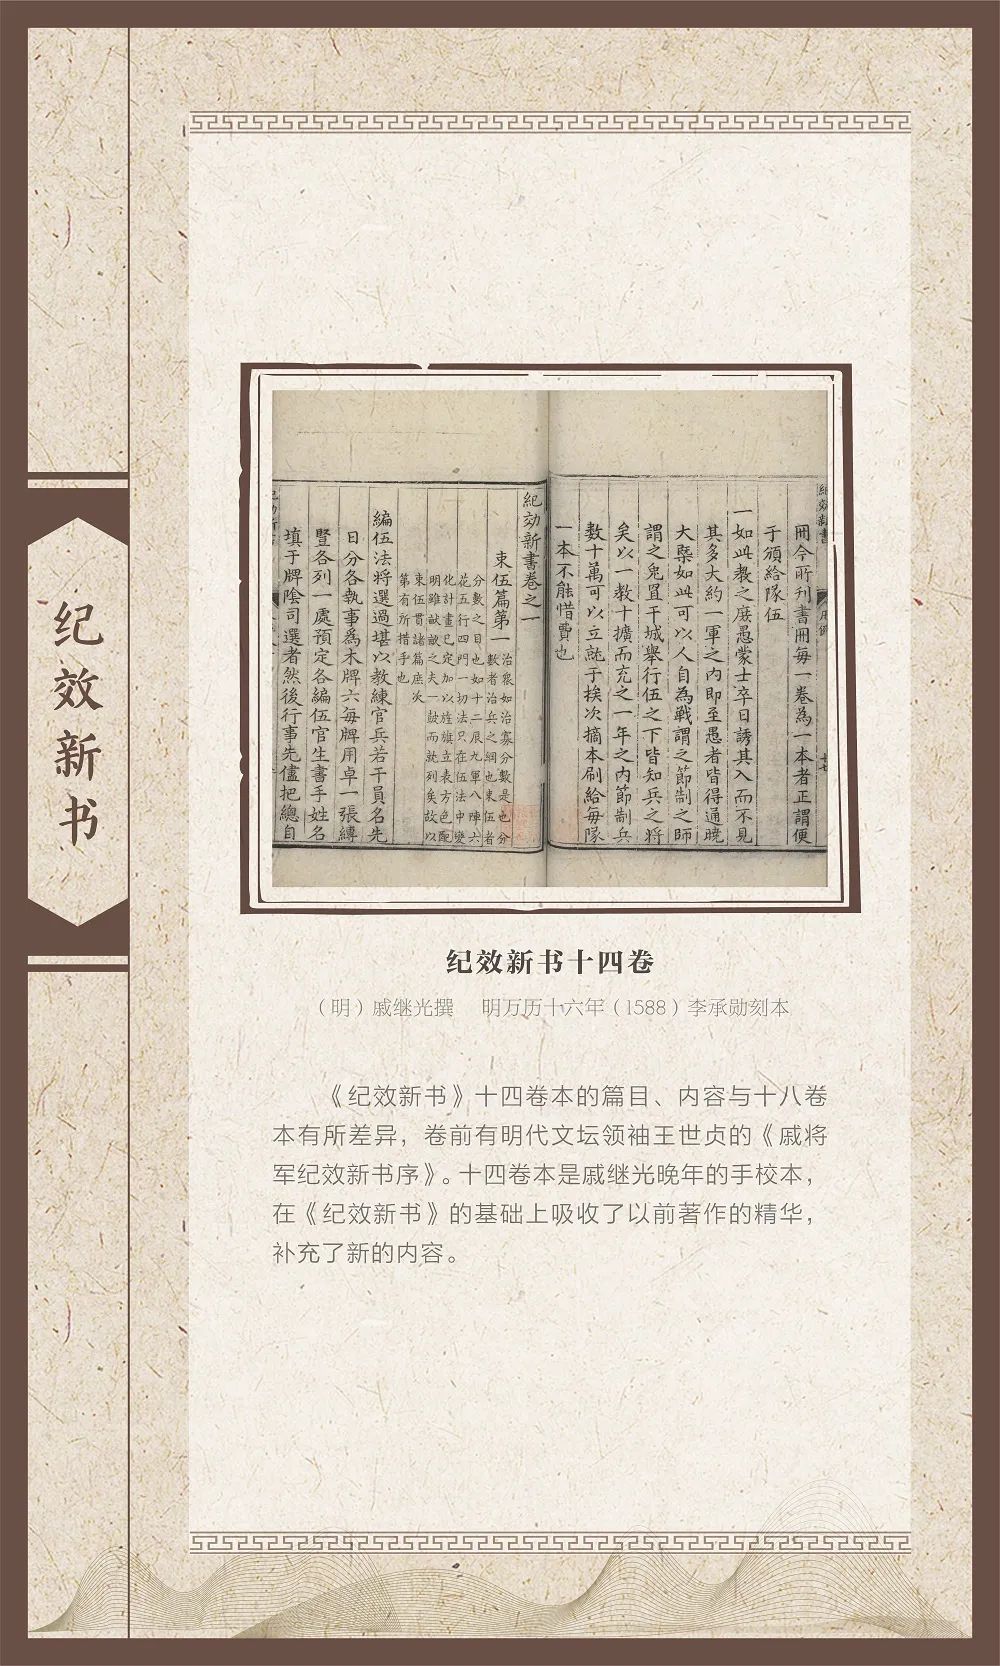 纪效新书
冊今所刊書冊每一卷為一本者正謂便
于頒給隊伍
一如此教之庶愚蒙士卒日誘其入而不見
其多大約一軍之內即至愚者皆得通曉
大槩如此可以人自為戰謂之節制之師
謂之兔罝干城舉行伍之下皆知兵之將
矣以一教十擴而充之一年之內節制兵
數十萬可以立就于挨次摘本刷給每隊
一本不能惜費也
紀効新書卷之一
束伍篇第一
治衆如治寡分數是也分
數者治兵之綱也束伍者
分數之目也如十二辰九軍八陣六
花五行四門一切法只在伍法中變
化計畫已定加以旌旗立表方色配
明雖畎畝之夫一鼓而就列矣故以
束伍貫諸篇庶次
第有所措手也
編伍法將選過堪以教練官兵若干員名先
日分各執事為木牌六每牌用卓一張縛
豎各列一處預定各編伍官生書手姓名
填于牌陰司選者然後行事先儘把總自
纪效新书十四卷
（明）戚继光撰　明万历十六年（1588）李承勋刻本
《纪效新书》十四卷本的篇目、内容与十八卷
本有所差异，卷前有明代文坛领袖王世贞的《戚将
军纪效新书序》。十四卷本是戚继光晚年的手校本，
在《纪效新书》的基础上吸收了以前著作的精华，
补充了新的内容。